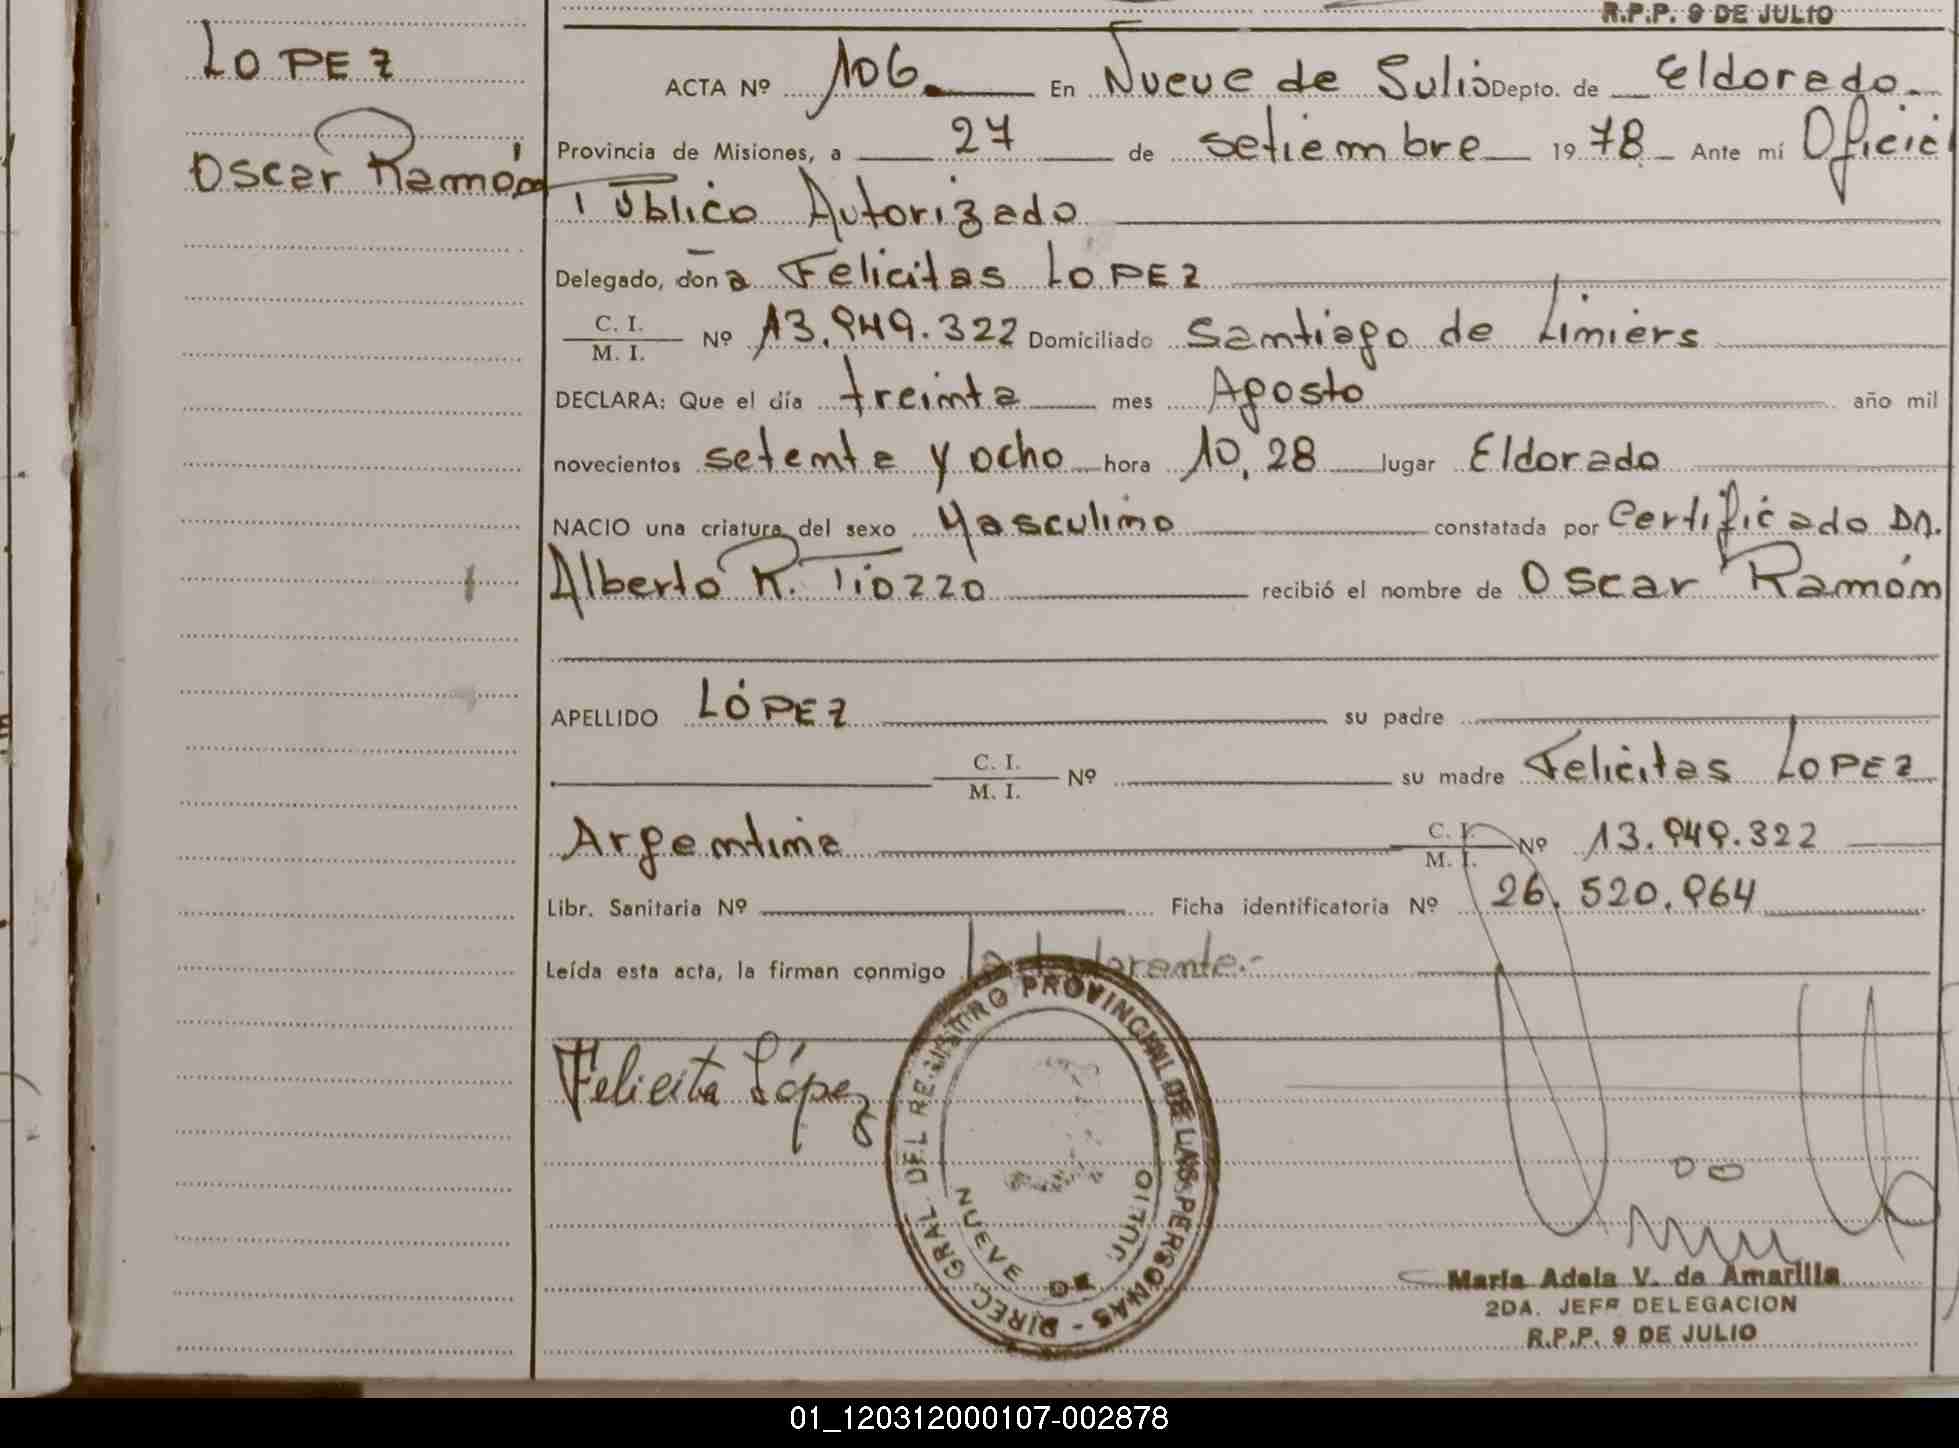 R.P.P. 9 DE JULIO
LOPEZ
Oscar Ramón
ACTA Nº 106. En Nueve de Julio Depto. de Eldorado
Provincia de Misiones, a 27 de setiembre 1978 Ante mí Oficial
Público Autorizado
Delegado, doña Felicitas LOPEZ
C. I. / M. I. Nº 13.949.322 Domiciliado Santiago de Liniers
DECLARA: Que el día treinta mes Agosto año mil
novecientos setenta y ocho hora 10,28 lugar Eldorado
NACIO una criatura del sexo Masculino constatada por Certificado Dn.
Alberto R. Tiozzo recibió el nombre de Oscar Ramón
APELLIDO LÓPEZ su padre
C. I. / M. I. Nº su madre Felicitas LOPEZ
Argentina C. I. / M. I. Nº 13.949.322
Libr. Sanitaria Nº Ficha identificatoria Nº 26.520.964
Leída esta acta, la firman conmigo la declarante.-
Felicita López
DIREC. GRAL. DEL REGISTRO PROVINCIAL DE LAS PERSONAS -
NUEVE DE JULIO
María Adela V. de Amarilla
2DA. JEFE DELEGACION
R.P.P. 9 DE JULIO
01_120312000107-002878